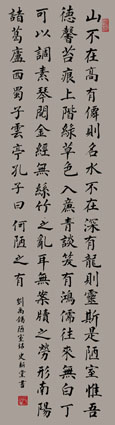 山不在高有僊則名水不在深有龍則靈斯是陋室惟吾
德馨苔痕上階綠草色入簾青談笑有鴻儒往來無白丁
可以調素琴閱金經無絲竹之亂耳無案牘之勞形南陽
諸葛廬西蜀子雲亭孔子曰何陋之有
劉禹錫陋室銘